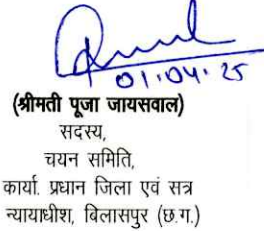 01.04.25
(श्रीमती पूजा जायसवाल)
सदस्य,
चयन समिति,
कार्या. प्रधान जिला एवं सत्र
न्यायाधीश, बिलासपुर (छ.ग.)